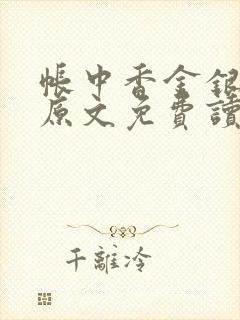 帳中香金銀
原文免費讀
千離冷